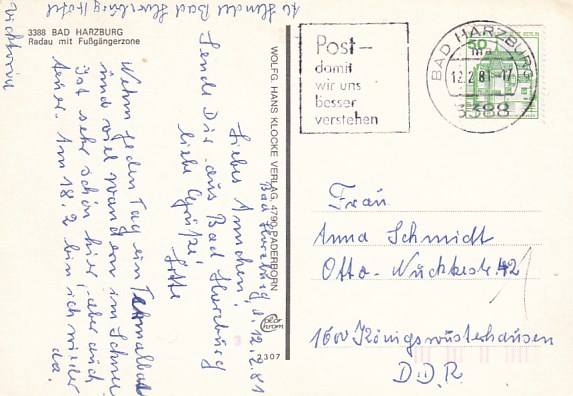 3388 BAD HARZBURG
Radau mit Fußgängerzone
Bad Harzburg, d. 12.2.81
Liebes Annchen!
Sende Dir aus Bad Harzburg
liebe Grüße!
Lotte
Nehm jeden Tag ein Thermalbad
und viel wandern im Schnee
Ist sehr schön hier, aber auch
teuer. Am 18.2 bin ich wieder
da.
Bad Harzburg Hotel
Victoria
WOLFG. HANS KLOCKE VERLAG, 4790 PADERBORN
color
chrom
2307
Post-
damit
wir uns
besser
verstehen
BAD HARZBURG 1
ma
12.2.81-17
3388
50
Frau
Anna Schmidt
Otto-Nuschkestr 42
1600 Königswusterhausen
D.D.R.